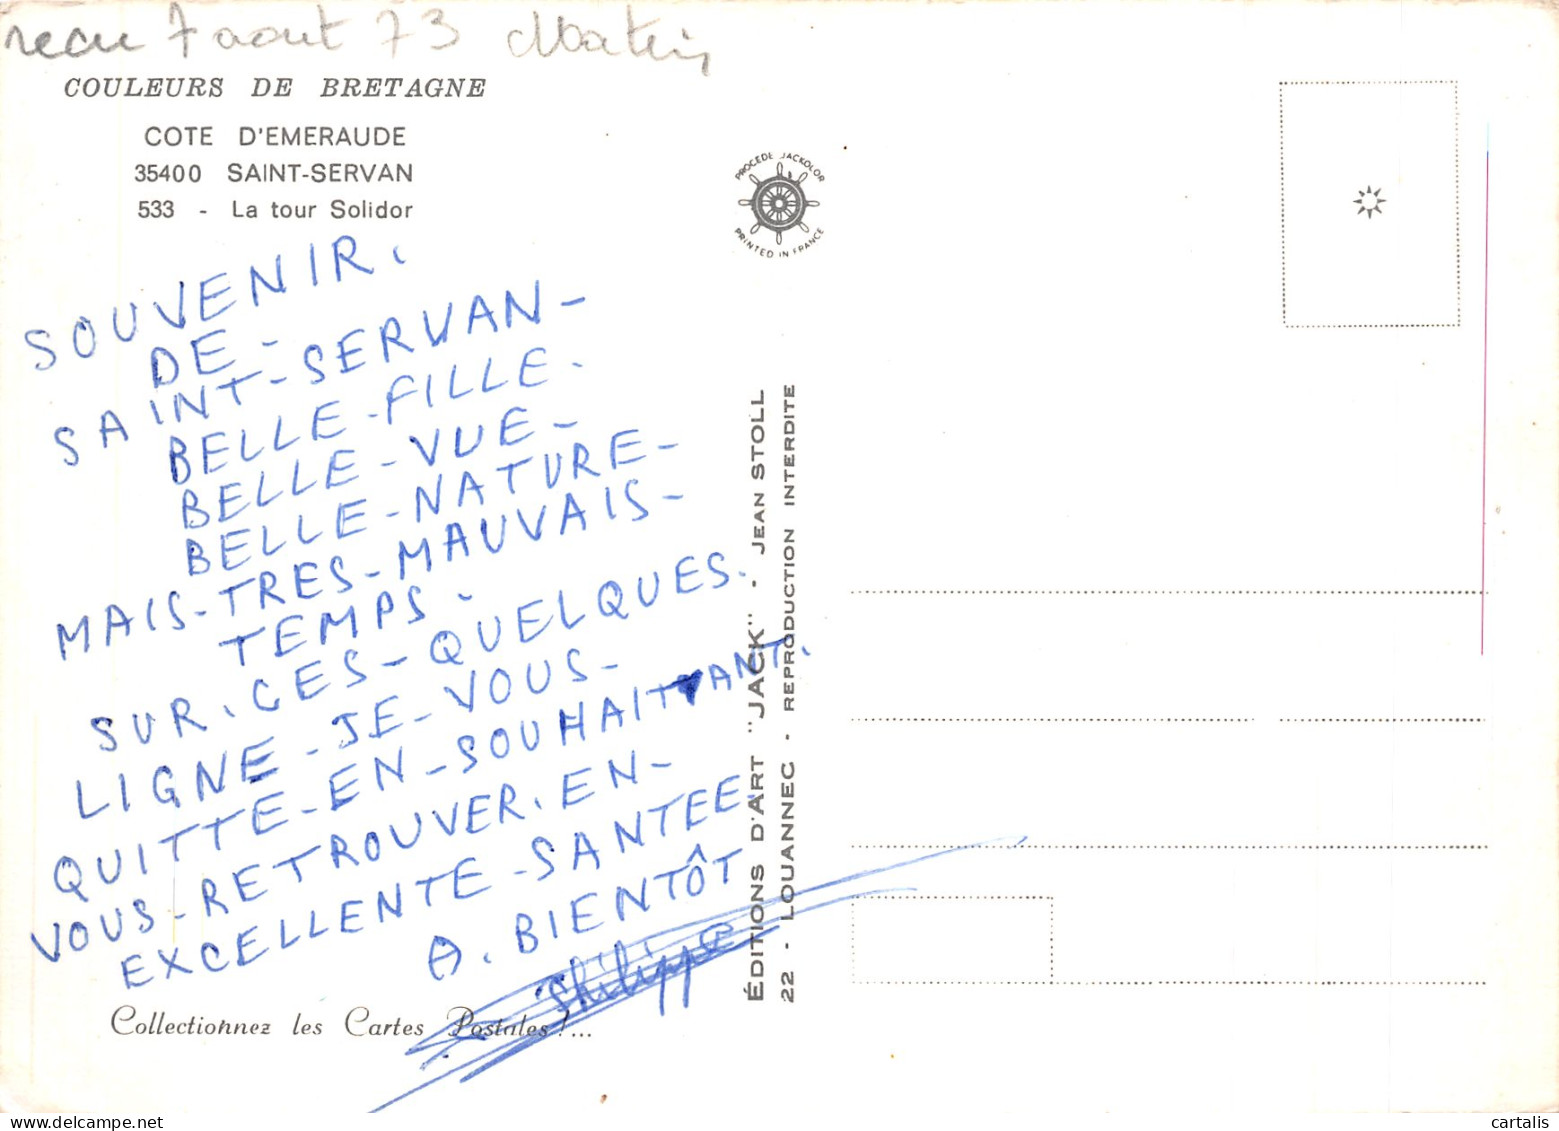 recu 7 aout 73 Matin
COULEURS DE BRETAGNE
COTE D'EMERAUDE
35400 SAINT-SERVAN
533 - La tour Solidor
SOUVENIR.
DE-
SAINT-SERVAN-
BELLE-FILLE-
BELLE-VUE-
BELLE-NATURE-
MAIS-TRES-MAUVAIS-
TEMPS-
SUR.CES-QUELQUES.
LIGNE-JE-VOUS-
QUITTE-EN-SOUHAITTANT.
VOUS-RETROUVER.EN-
EXCELLENTE-SANTEE.
A.BIENTÔT
Philippe
Collectionnez les Cartes Postales!...
PROCEDE JACKOLOR
PRINTED IN FRANCE
ÉDITIONS D'ART "JACK" - JEAN STOLL
22 - LOUANNEC - REPRODUCTION INTERDITE
cartalis